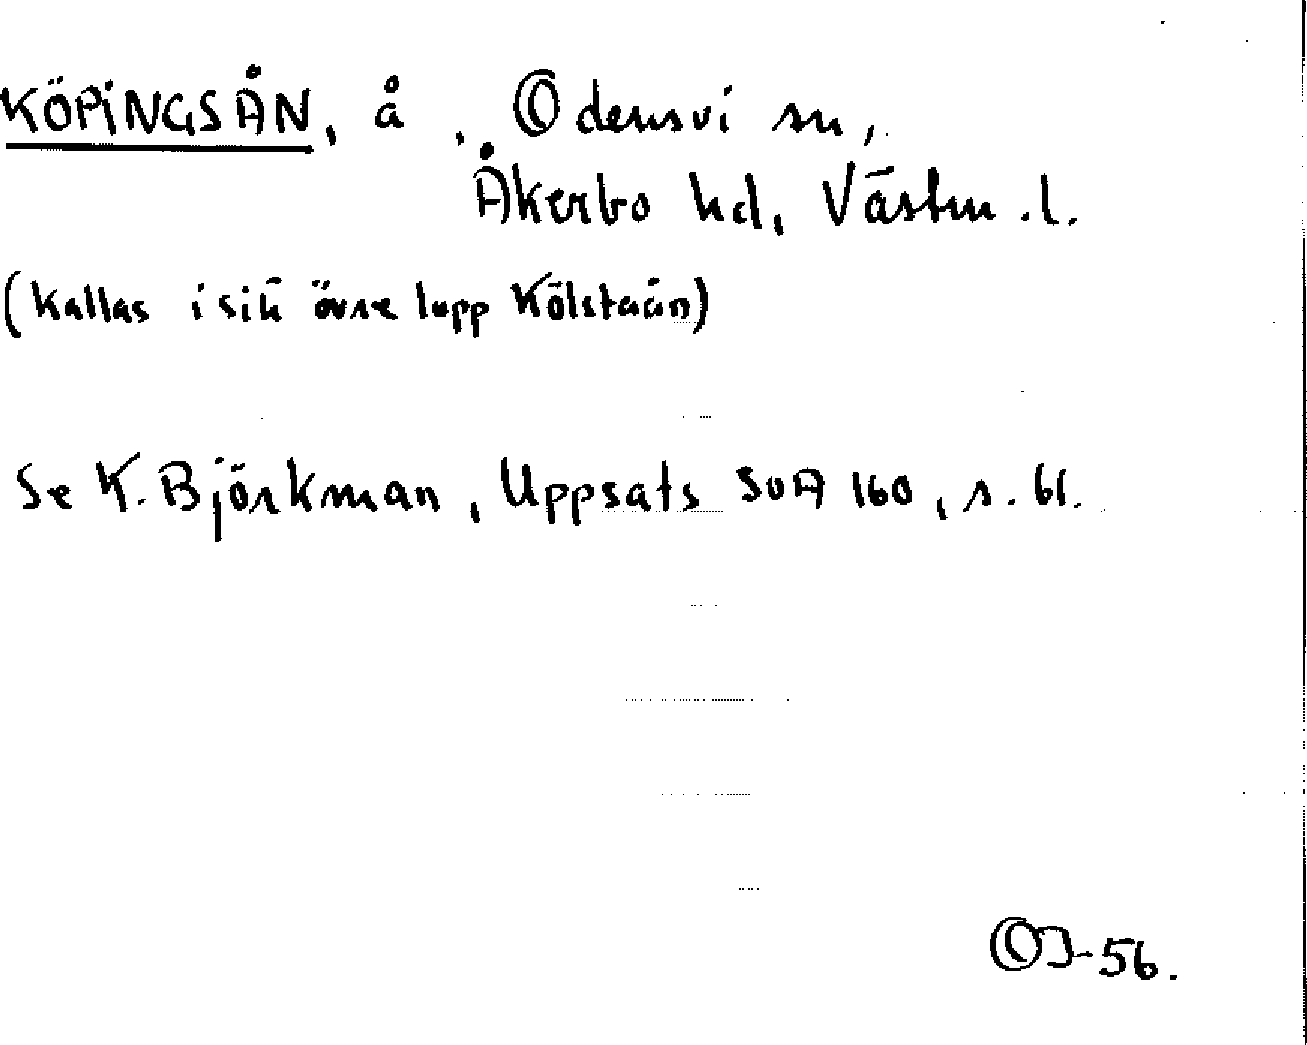 KÖPINGSÅN, å , Odensvi sn,
Åkerbo hd, Västm. l.
(Kallas i sitt övre lopp Kölstaån)
Se K. Björkman, Uppsats SOA 160, s. 61.
OJ-56.